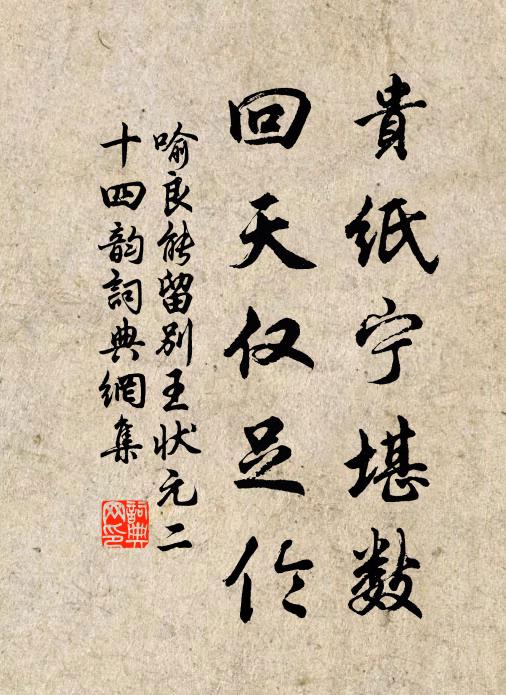 貴紙宁堪數
回天仅足伦
喻良能留别王状元二
十四韵詞典網集
詞典網印